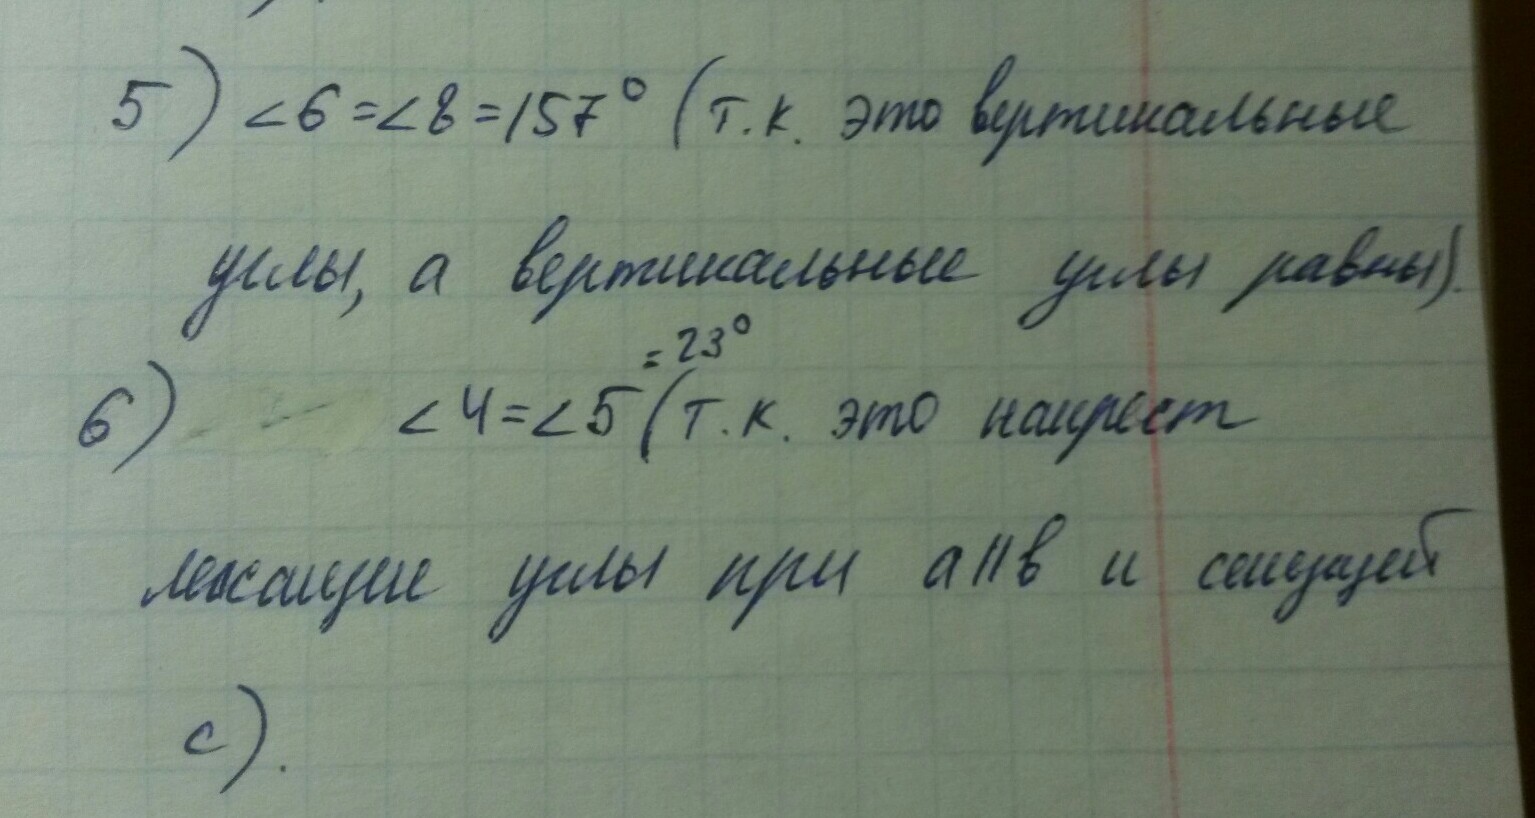 5) ∠6=∠8=157° (т.к. это вертикальные
углы, а вертикальные углы равны).
6) ∠4=∠5 =23° (т.к. это накрест
лежащие углы при a||b и секущей
c).